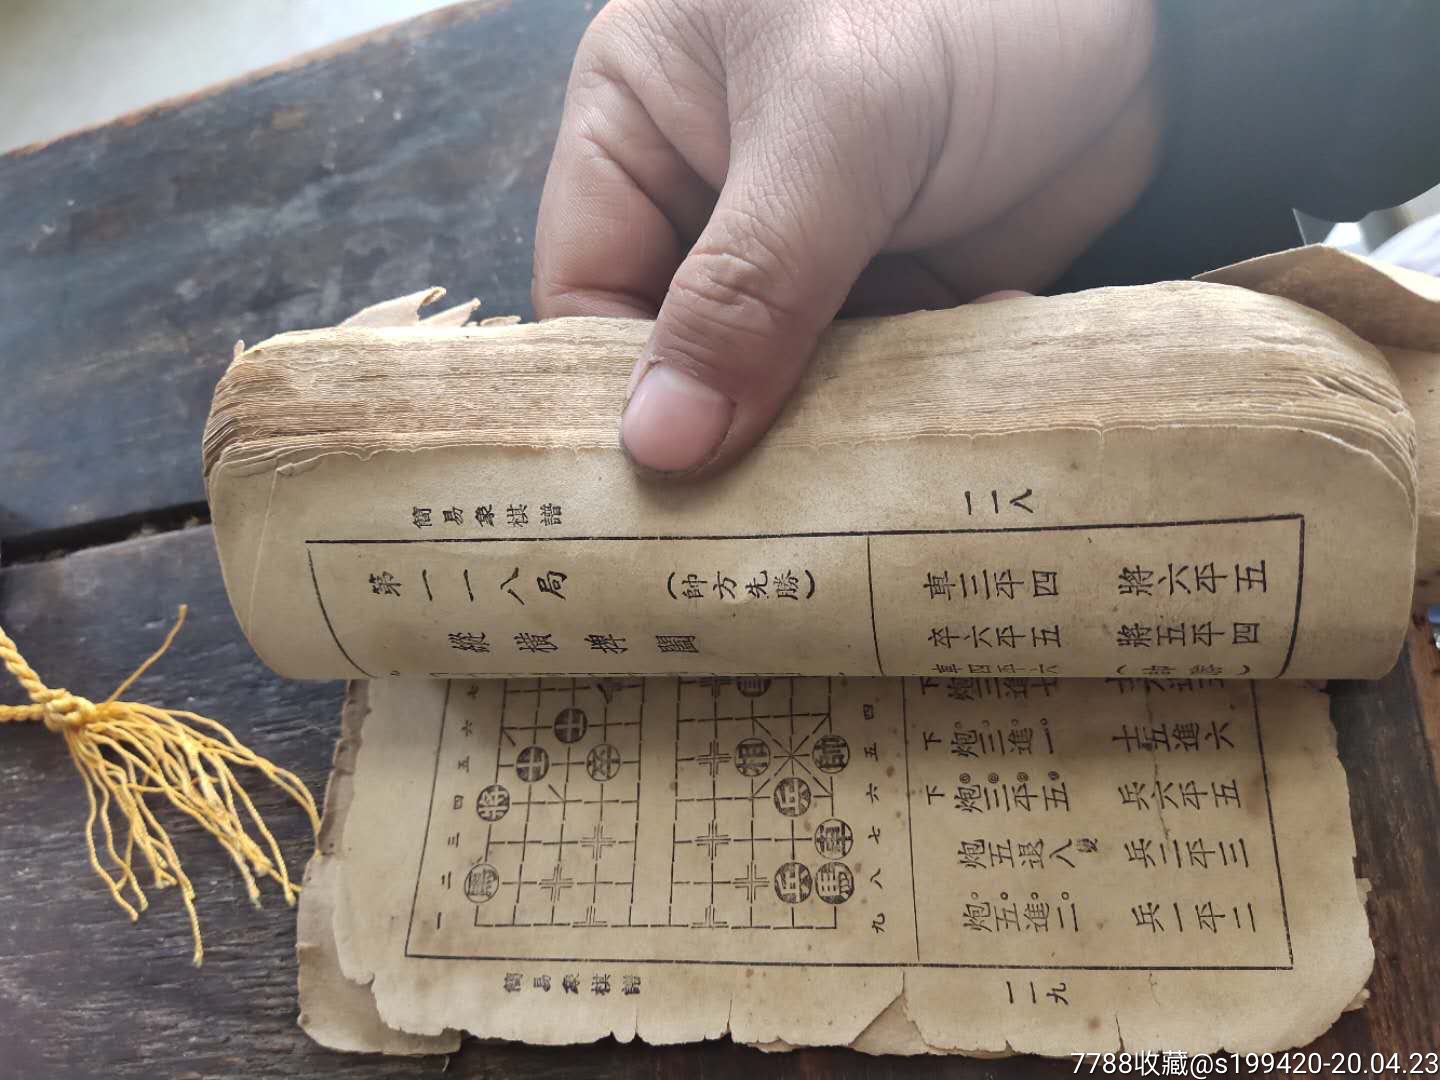 簡易象棋譜
一一八
第一一八局
(帥方先勝)
縱橫捭闔
車三平四
將六平五
卒六平五
將五平四
車四平六
(帥勝)
七
六
五
四
三
二
一
士
士
卒
將
馬
相
帥
兵
車
兵
馬
四
五
六
七
八
九
下
炮三進一
士五進六
下
炮三平五
兵六平五
炮五退八
變
兵二平三
炮五進二
兵一平二
簡易象棋譜
一一九
7788收藏@s199420-20.04.23